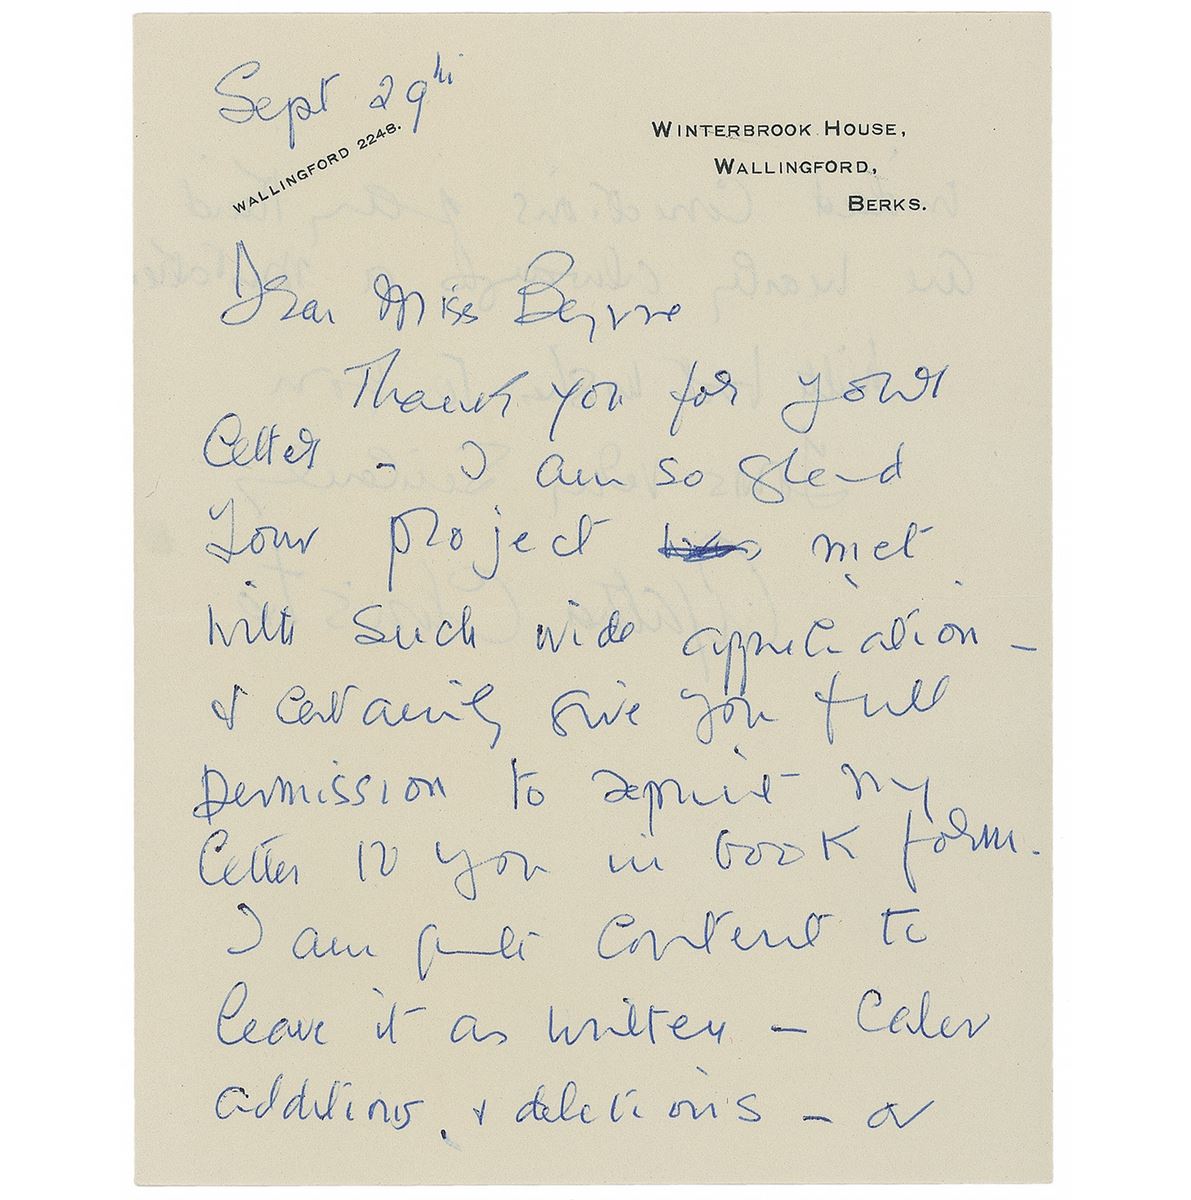 Sept 29th
WALLINGFORD 2248.
WINTERBROOK HOUSE,
WALLINGFORD,
BERKS.
Dear Miss Beyrne
Thank you for your
letter - I am so glad
your project met
with such wide appreciation -
& certainly give you full
permission to reprint my
letter to you in book form.
I am quite content to
leave it as written - later
additions, & deletions - or